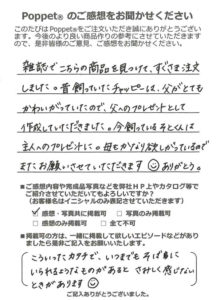 Poppet® のご感想をお聞かせください
このたびは Poppet® をご注文いただき誠にありがとうございます。今後のより良い商品作りの参考にさせていただきますので、是非皆様のご意見、ご感想をお聞かせください。
雑誌でこちらの商品を見つけて、すぐさま注文
しました。昔飼っていたチャッピーは、父がとても
かわいがっていたので、父へのプレゼントとして
作成していただきました。今飼っている
主人へのプレゼントに。母も欲しがっているので
またお願いさせていただきます ありがとう。
■ご感想内容や完成品写真などを弊社HP上やカタログ等で
ご紹介させていただいてもよろしいですか?
(お客様名はイニシャルのみ表記させていただきます)
感想・写真共に掲載可 □写真のみ掲載可
□感想のみ掲載可 □全て不可
■掲載可の方は、一緒に掲載して欲しいエピソードなどがありましたら是非ご記入をお願いいたします。
こういったカタチで、いつまでもそばに
いられるようなものがあると さみしく感じない
ときがあります
ご記入ありがとうございました。